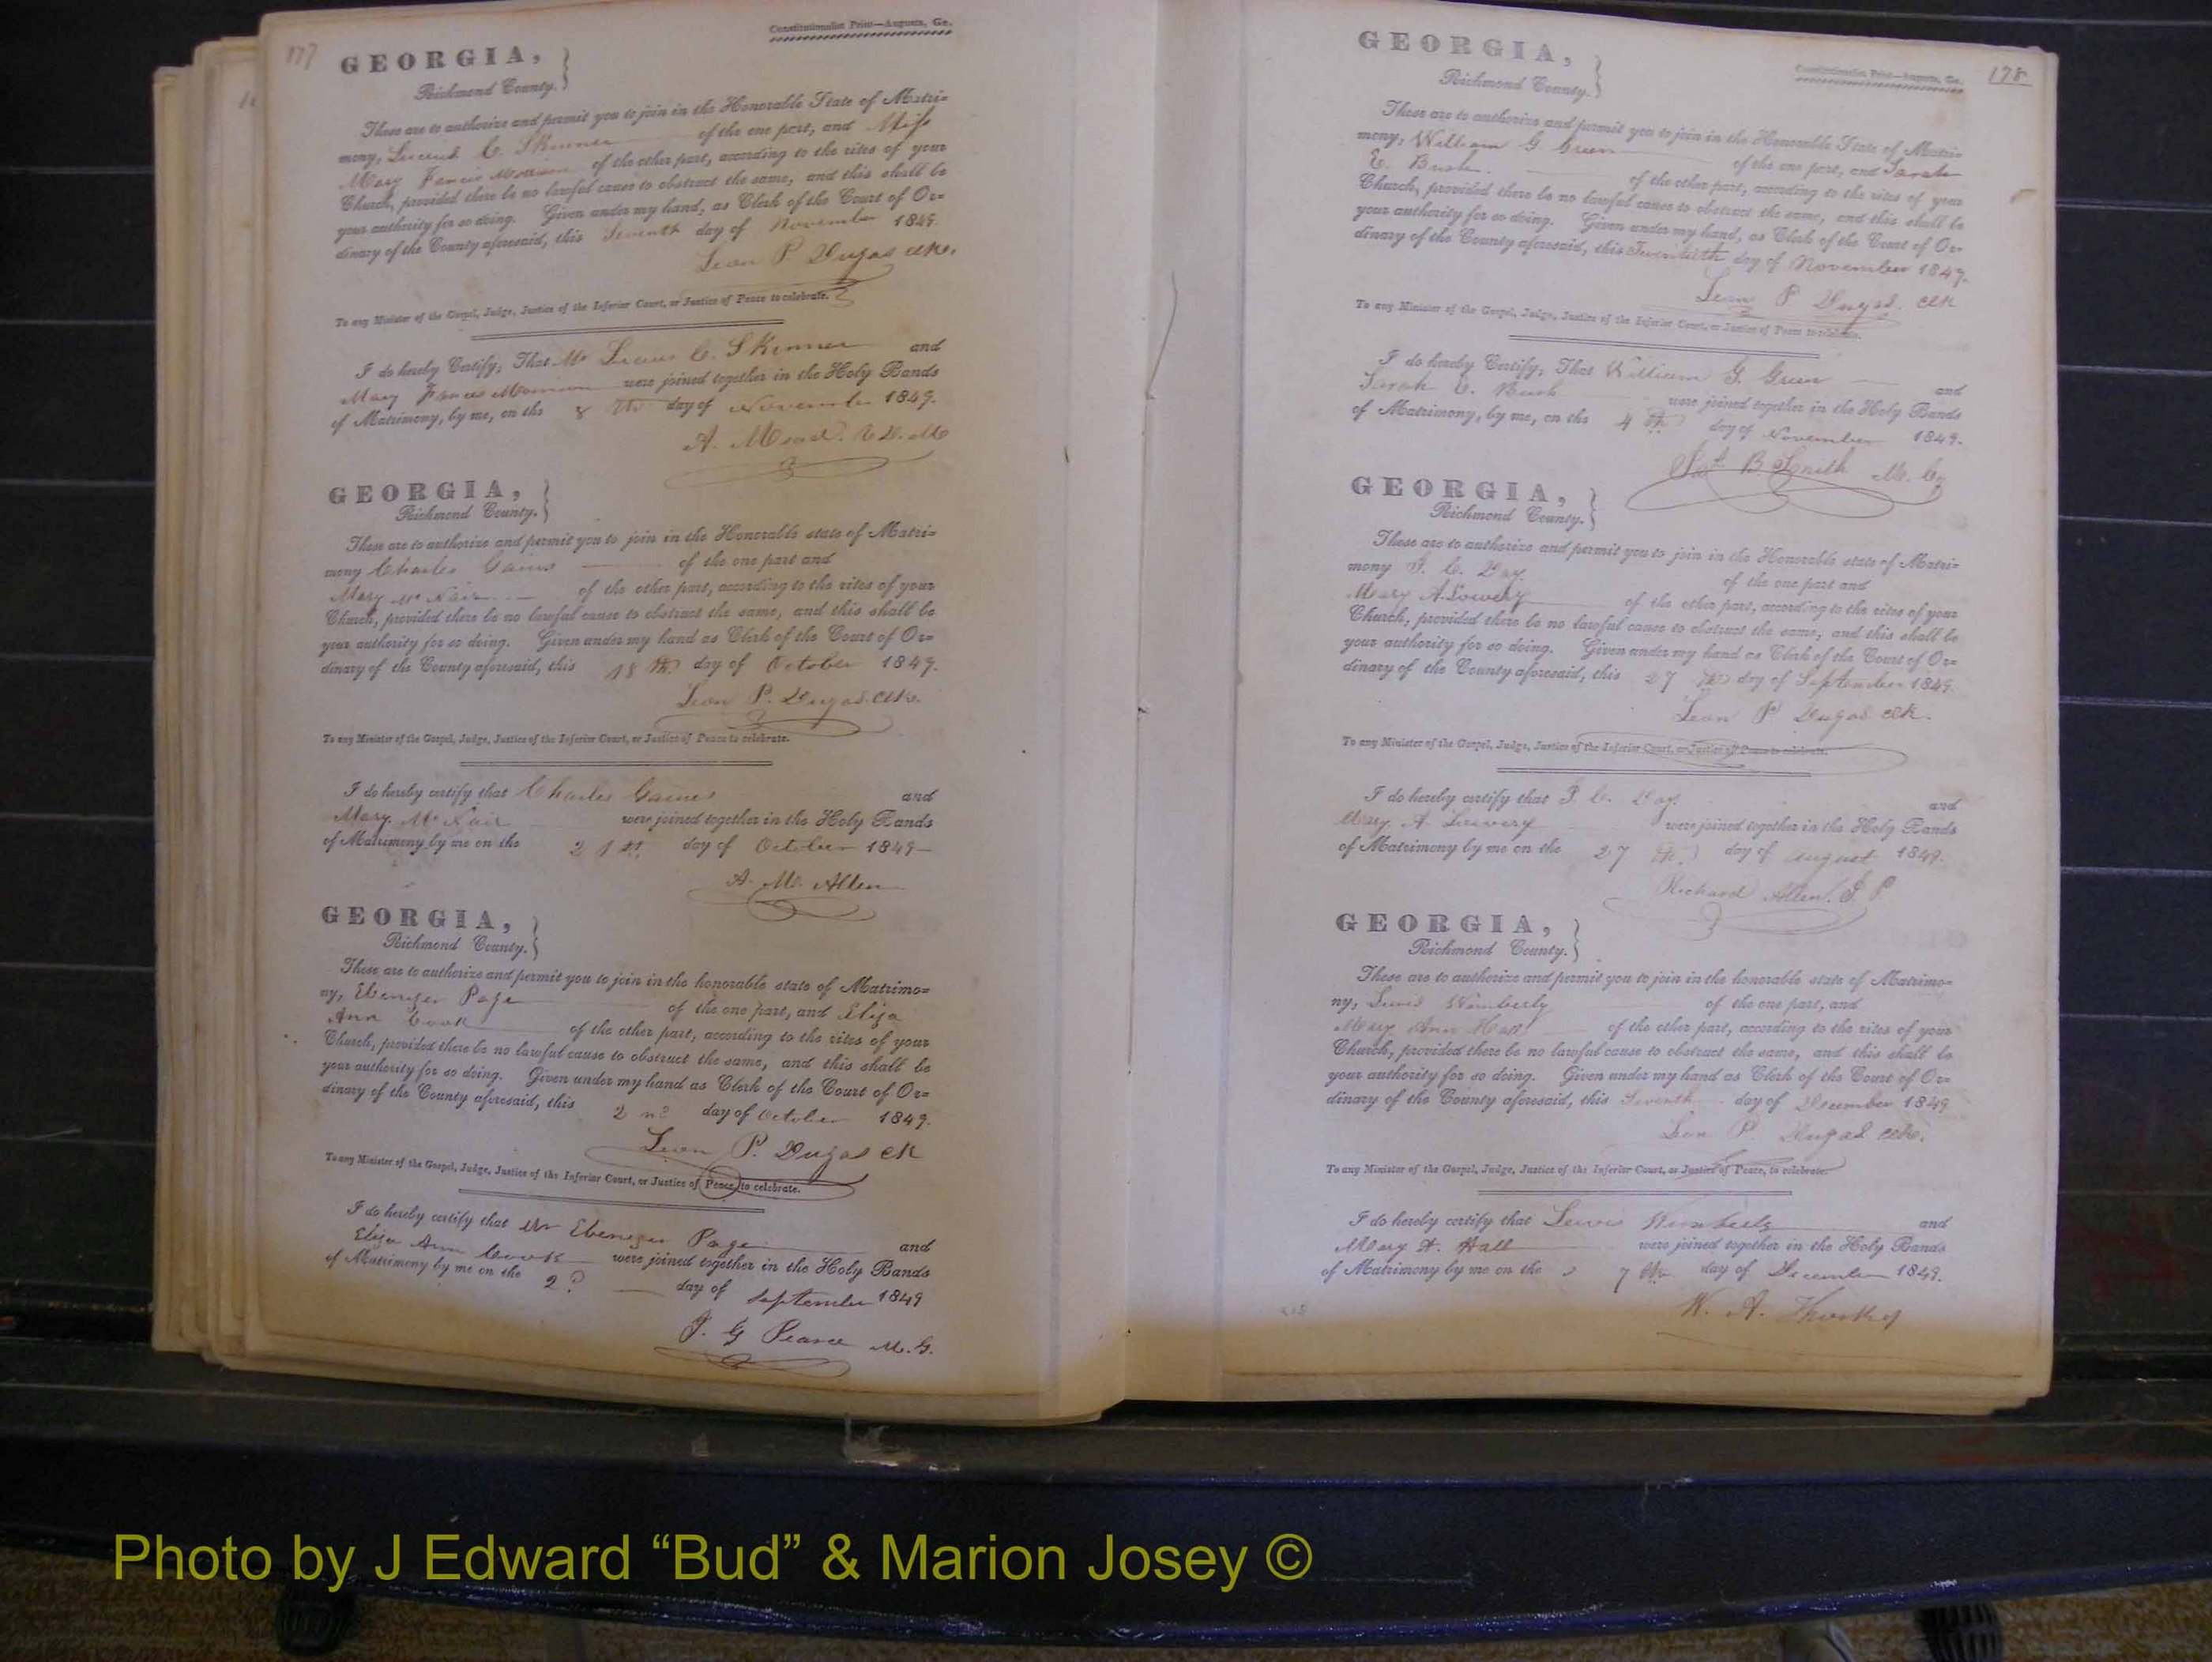 177
Constitutionalist Print—Augusta, Ga.
GEORGIA,
Richmond County.
These are to authorize and permit you to join in the Honorable State of Matri=
mony, Lucius C. Skinner of the one part, and Miss
Mary Frances Morrison of the other part, according to the rites of your
Church, provided there be no lawful cause to obstruct the same, and this shall be
your authority for so doing. Given under my hand, as Clerk of the Court of Or=
dinary of the County aforesaid, this Seventh day of November 1849.
Leon P. Dugas Clk.
To any Minister of the Gospel, Judge, Justice of the Inferior Court, or Justice of Peace to celebrate.
I do hereby Certify, That Mr Lucius C. Skinner and
Mary Frances Morrison were joined together in the Holy Bands
of Matrimony, by me, on the 8 th day of November 1849.
A. Mead. V. D. M
GEORGIA,
Richmond County.
These are to authorize and permit you to join in the Honorable state of Matri=
mony Charles Gaines of the one part and
Mary McNair of the other part, according to the rites of your
Church, provided there be no lawful cause to obstruct the same, and this shall be
your authority for so doing. Given under my hand as Clerk of the Court of Or=
dinary of the County aforesaid, this 18 th day of October 1849.
Leon P. Dugas. Clk.
To any Minister of the Gospel, Judge, Justice of the Inferior Court, or Justice of Peace to celebrate.
I do hereby certify that Charles Gaines and
Mary McNair were joined together in the Holy Bands
of Matrimony by me on the 21st day of October 1849—
A. M. Allen
GEORGIA,
Richmond County.
These are to authorize and permit you to join in the honorable state of Matrimo=
ny, Ebenezer Page of the one part, and Eliza
Ann Cook of the other part, according to the rites of your
Church, provided there be no lawful cause to obstruct the same, and this shall be
your authority for so doing. Given under my hand as Clerk of the Court of Or=
dinary of the County aforesaid, this 2 nd day of October 1849.
Leon P. Dugas Clk
To any Minister of the Gospel, Judge, Justice of the Inferior Court, or Justice of Peace, to celebrate.
I do hereby certify that Mr Ebenezer Page and
Eliza Ann Cook were joined together in the Holy Bands
of Matrimony by me on the 2 day of September 1849
J. G Pearce M. G.
178
Constitutionalist Print—Augusta, Ga.
GEORGIA,
Richmond County.
These are to authorize and permit you to join in the Honorable State of Matri=
mony, William G. Green of the one part, and Sarah
E. Bush. of the other part, according to the rites of your
Church, provided there be no lawful cause to obstruct the same, and this shall be
your authority for so doing. Given under my hand, as Clerk of the Court of Or=
dinary of the County aforesaid, this day of November 1849.
Leon P Dugas. Clk
To any Minister of the Gospel, Judge, Justice of the Inferior Court, or Justice of Peace to celebrate.
I do hereby Certify, That William G. Green and
Sarah E. Bush were joined together in the Holy Bands
of Matrimony, by me, on the 4 th day of November 1849.
B. Smith
GEORGIA,
Richmond County.
These are to authorize and permit you to join in the Honorable state of Matri=
mony C. Day. of the one part and
Mary A. Lowery of the other part, according to the rites of your
Church, provided there be no lawful cause to obstruct the same, and this shall be
your authority for so doing. Given under my hand as Clerk of the Court of Or=
dinary of the County aforesaid, this 27 th day of September 1849.
Leon P Dugas Clk.
To any Minister of the Gospel, Judge, Justice of the Inferior Court, or Justice of Peace to celebrate.
I do hereby certify that C. Day. and
Mary A. Lowery were joined together in the Holy Bands
of Matrimony by me on the 27 th day of August 1849.
Richard Allen. J. P.
GEORGIA,
Richmond County.
These are to authorize and permit you to join in the honorable state of Matrimo=
ny, Lewis Wimberly of the one part, and
Mary Ann Hall of the other part, according to the rites of your
Church, provided there be no lawful cause to obstruct the same, and this shall be
your authority for so doing. Given under my hand as Clerk of the Court of Or=
dinary of the County aforesaid, this Seventh day of December 1849
Leon P. Dugas Clk.
To any Minister of the Gospel, Judge, Justice of the Inferior Court, or Justice of Peace, to celebrate.
I do hereby certify that Lewis Wimberly and
Mary A. Hall were joined together in the Holy Bands
of Matrimony by me on the 7 th day of December 1849.
W. A.
Photo by J Edward “Bud” & Marion Josey ©